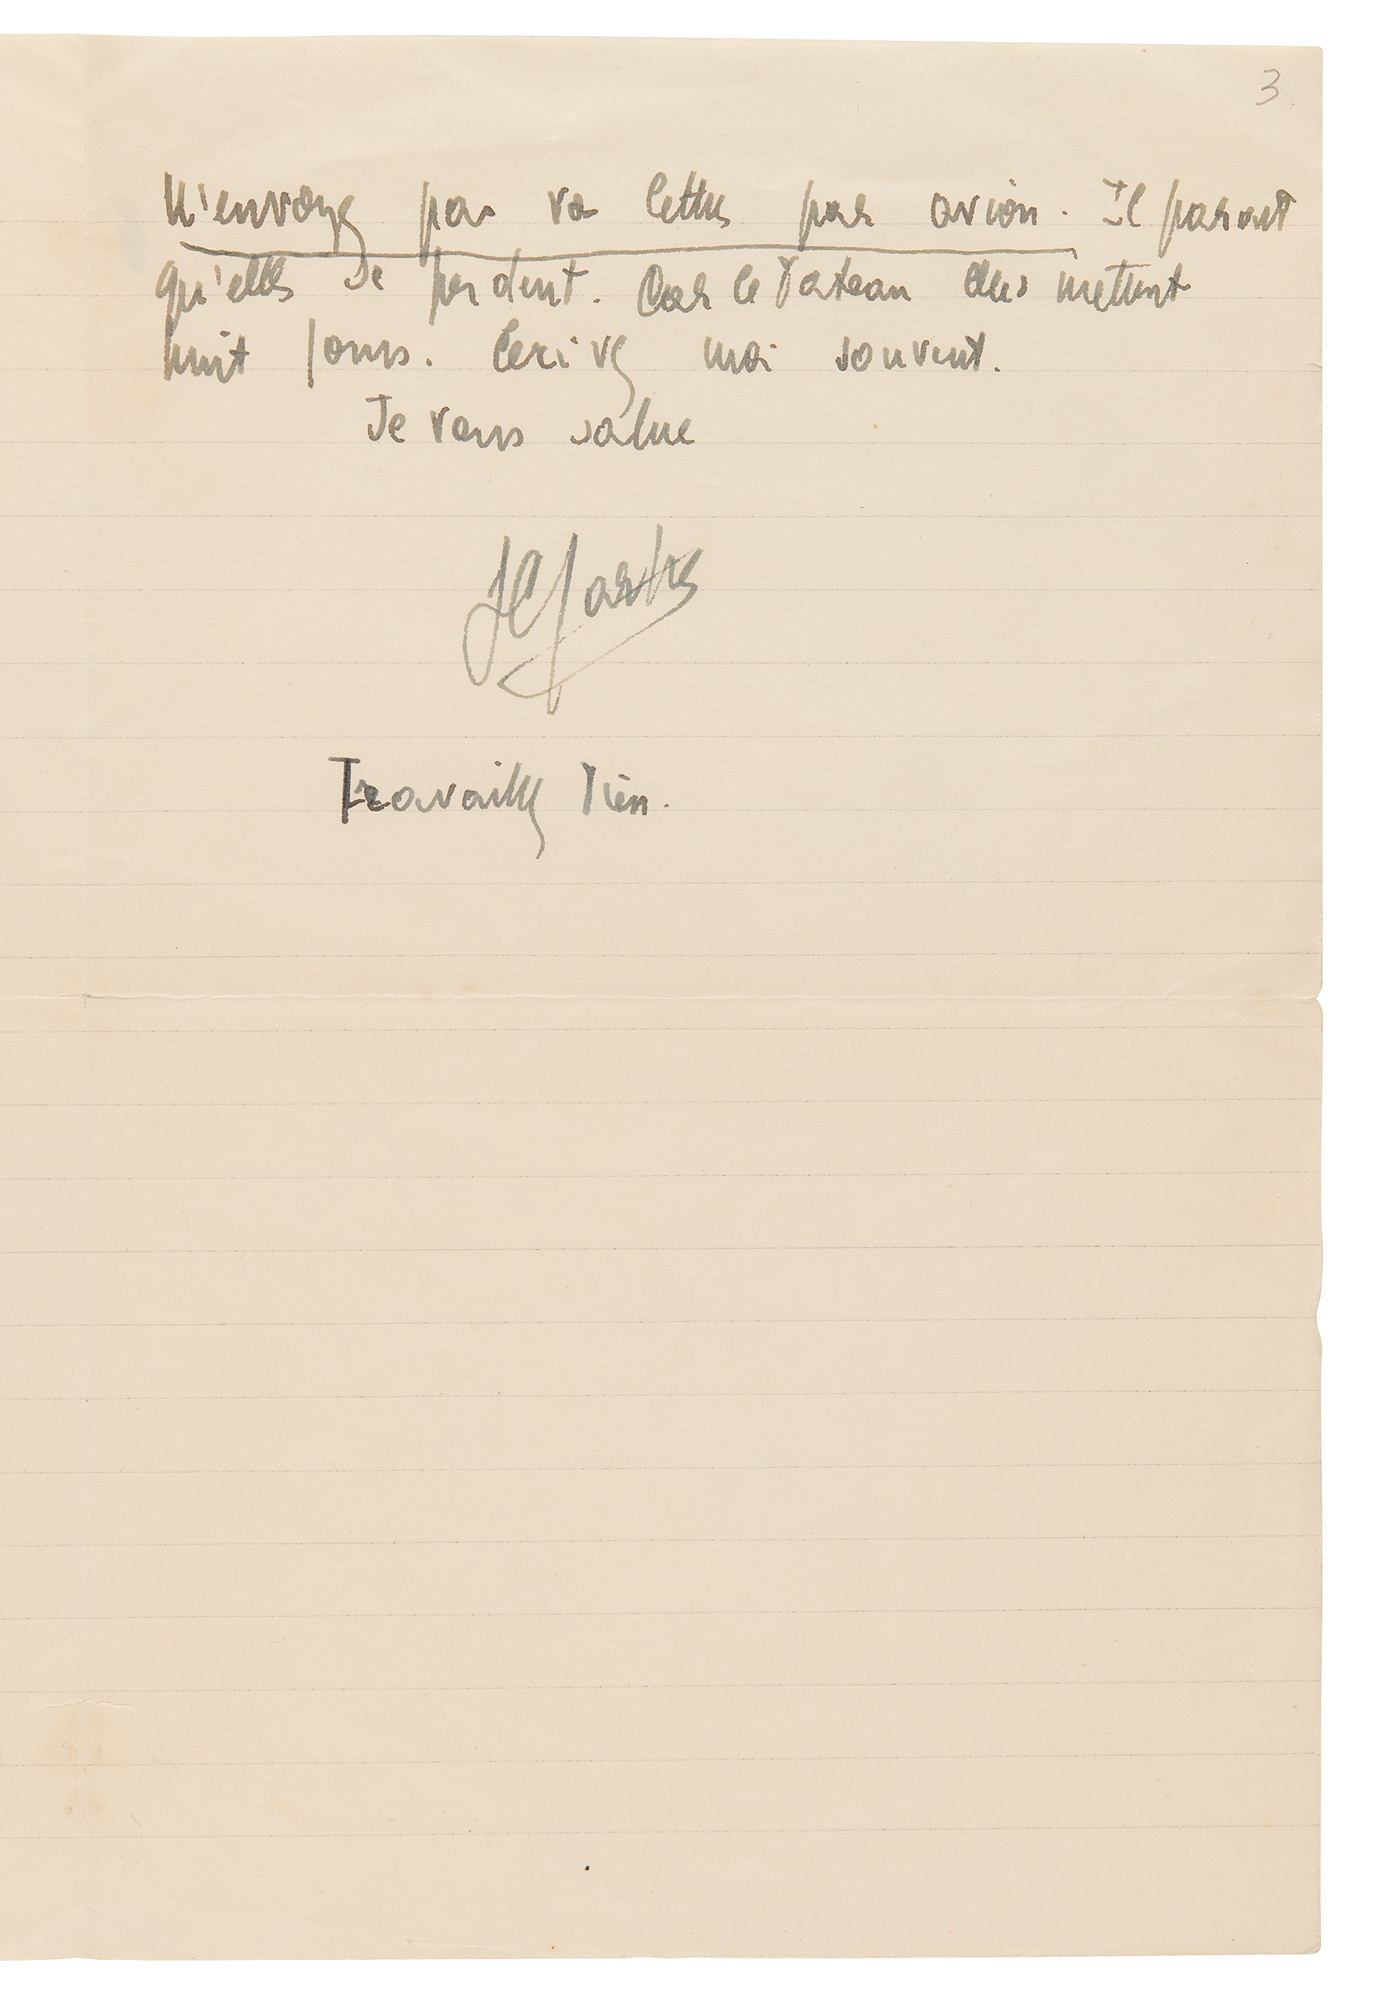 3
N'envoyez pas vos lettres par avion. Il parait
qu'elles se perdent. Par le bateau elles mettent
huit jours. Ecrivez moi souvent.
Je vous salue
Travaillez bien.